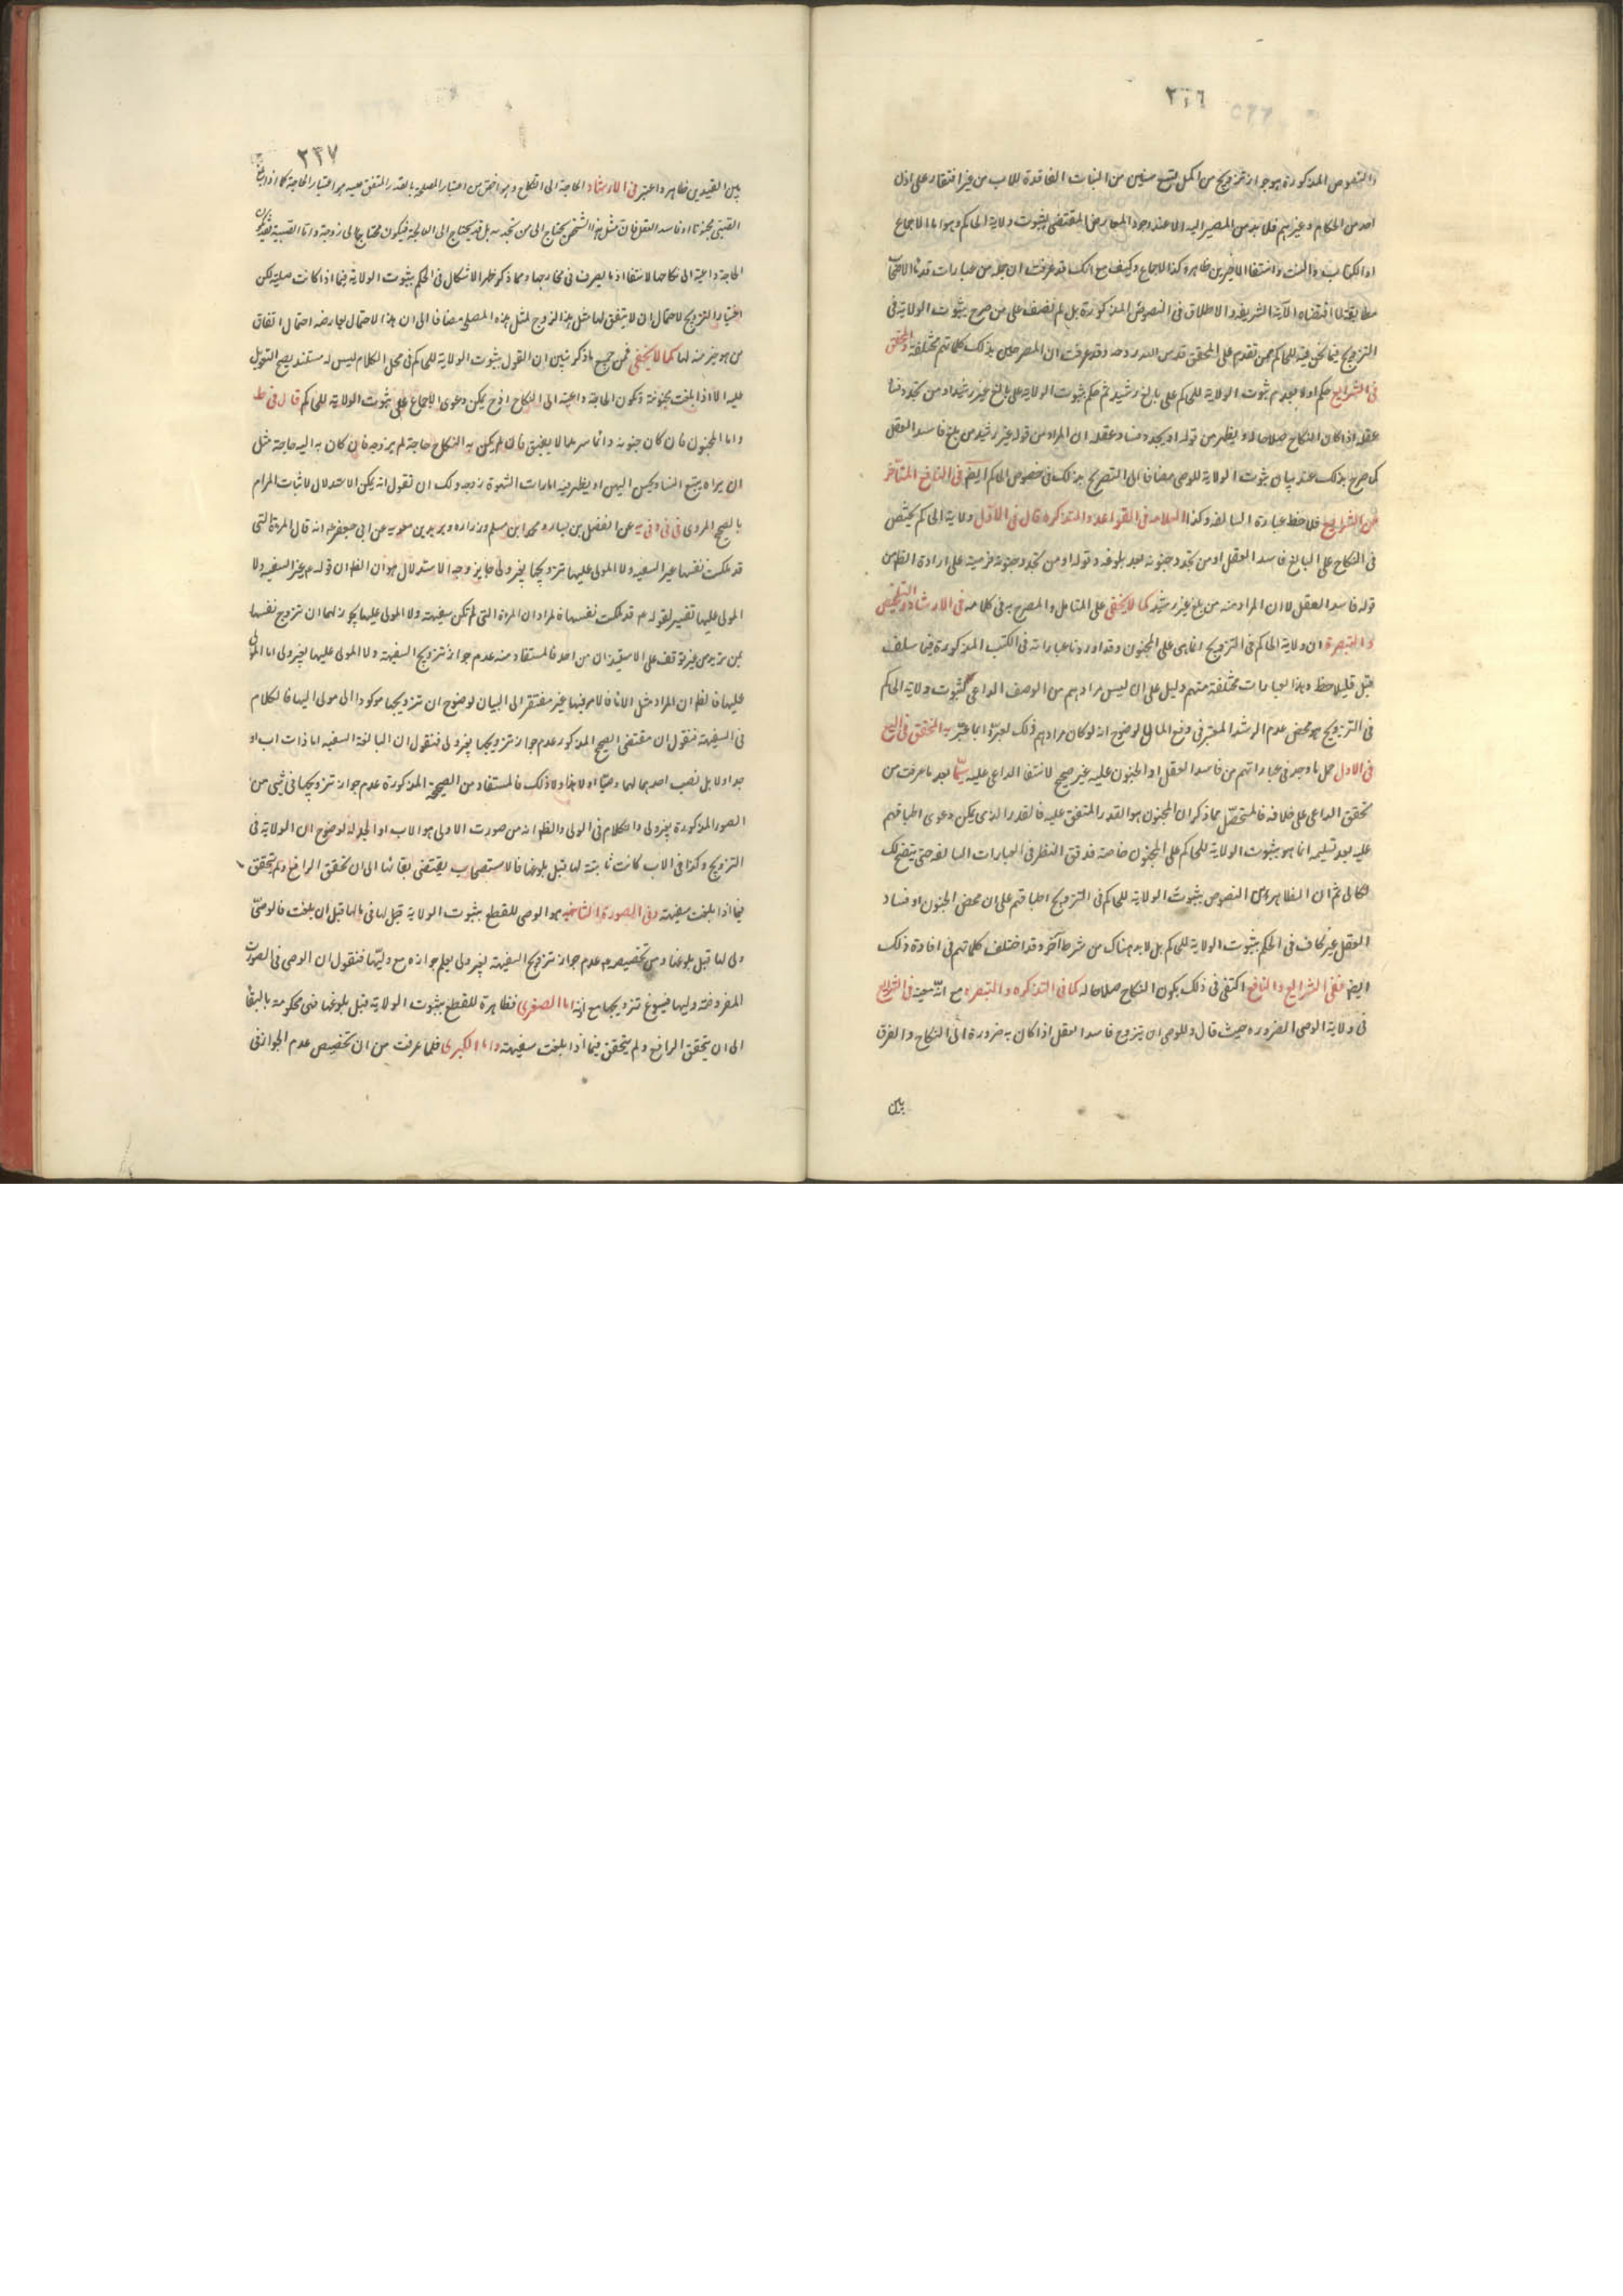 ٢٣٦
والنصوص المذكورة هو جواز تزويج من اكمل تسع سنين من البنات الفاقدة للاب من غير افتقار على اذن
احد من الحكام وغيرهم فلا بد من المصير اليه الا عند وجود المعارض المقتضى لثبوت ولاية الحاكم وهو اما الاجماع
او الكتاب والسنة وانتفاء الاخيرين ظاهرة كذا الاجماع وكيف مع انك قد عرفت ان جملة من عبارات قدماء الاصحاب
مطابقة لما اقتضاه الآية الشريفة والاطلاق فى النصوص المذكورة بل لم نقف على من صرح بثبوت الولاية فى
التزويج فيما نحن فيه للحاكم ممن تقدم على المحقق قدس الله روحه وقد عرفت ان المصرحين بذلك كلماتهم مختلفة والمحقق
فى الشرايع حكم اولا بعدم ثبوت الولاية للحاكم على بالغ رشيد ثم حكم بثبوت الولاية على بالغ غير رشيد او من تجدد فساد
عقله اذا كان النكاح صلاحا له ويظهر من قوله او يجدد فساد عقله ان المراد من قوله غير رشيد من بلغ فاسد العقل
كما صرح بذلك عند بيان ثبوت الولاية للوصى مضافا الى التصريح بذلك فى خصوص الحاكم ايضا فى النافع المتاخر
من الشرايع فلاحظ عبارة السالفة وكذا العلامه فى القواعد والتذكره قال فى الاول ولاية الحاكم يختص
فى النكاح على البالغ فاسد العقل او من تجدد جنونه بعد بلوغه وقوله او من تجدد جنونه قرينة على ارادة الظاهر من
قوله فاسد العقل لا ان المراد منه من بلغ غير رشيد كما لا يخفى على المتامل والمصرح به فى كلامه فى الارشاد والتلخيص
والتبصرة ان ولاية الحاكم فى التزويج انما هى على المجنون وقد اوردنا عباراته فى الكتب المذكورة فيما سلف
قبل قليلا حظ وهذا العبارات مختلفة منهم دليل على ان ليس مرادهم من الوصف الداعى لثبوت ولاية الحاكم
فى التزويج هو محض عدم الرشد المعتبر فى دفع المال لوضوح انه لو كان مرادهم ذلك لعبروا بما عبر به المحقق فى الشرايع
فى الاول حمل ما وجد فى عباراتهم من فاسد العقل او الجنون عليه غير صحيح لانتفاء الداعى عليه سيما بعد ما عرفت من
تحقق الداعى على خلافه فالمتحصل مما ذكر ان المجنون هو القدر المتفق عليه فالقدر الذى يمكن دعوى اطباقهم
عليه بعد تسليمه انما هو بثبوت الولاية للحاكم على المجنون خاصة فدقق النظر فى العبارات السالفة حتى يتضح لك
الحال ثم ان الظاهر من النصوص بثبوت الولاية للحاكم فى التزويج اطباقهم على ان محض الجنون او فساد
العقل غير كاف فى الحكم بثبوت الولاية للحاكم بل لابد هناك من شرط آخر وقد اختلف كلماتهم فى افادة ذلك
ايضا ففى الشرايع والنافع اكتفى فى ذلك بكون النكاح صلاحا له كما فى التذكره والتبصره مع انه معتبر فى الشرايع
فى ولاية الوصى الضرورة حيث قال وللوصى ان يزوج فاسد العقل اذا كان به ضرورة الى النكاح والفرق
بين
٢٣٧
بين القيدين ظاهر واعتبر فى الارشاد الحاجة الى النكاح وهو اخص من اعتبار المصلحة بالقدر المتفق عليه هو اعتبار الحاجة كما اذا بلغ
الصبى مجنونا او فاسد العقل فان مثل هذا الشخص يحتاج الى من تخدمه بل قد يحتاج الى المعالجة فيكون محتاجا الى زوجة واما الصبية
الحاجة داعية الى نكاحها لانتفاء اذ ما يصرف فى مخارجها ومما ذكر ظهر الاشكال فى الحكم بثبوت الولاية فيما اذا كانت صلية لكن
اختيار التزويج لاحتمال ان لا يتفق لها مثل هذا الزوج لمثل هذه المصلح مضافا الى ان هذا الاحتمال يعارضه احتمال اتفاق
من هو خير منه لها كما لا يخفى فمن جميع ما ذكر تبين ان القول بثبوت الولاية للحاكم فى محل الكلام ليس له مستند يصح التعويل
عليه الا اذا بلغت مجنونة وتكون الحاجة داعية الى النكاح اذ ح يمكن دعوى الاجماع على ثبوت الولاية للحاكم قال فى ط
واما المجنون فان كان جنونه دائما سرمدا لا يفيق فان لم يكن به النكاح حاجة لم يزوجه فان كان به اليه حاجة مثل
ان يراه يتبع النساء ويكس اليهن او يظهر فيه امارات الشهوة زوجه ولك ان تقول انه يمكن الاستدلال لاثبات المرام
بالصحيح المروى فى فى وفى يه عن الفضل بن يسار ومحمد ابن مسلم وزراره وبريد بن معويه عن ابى جعفر ع انه قال المرءة التى
قد ملكت نفسها غير السفيه ولا المولى عليها تزويجها بغير ولى جايز وجه الاستدلال هو ان الظ ان قوله ع غير السفيه ولا
المولى عليها تفسير لقوله ع قد ملكت نفسها فالمراد ان المرءة التى لم تكن سفيهة ولا المولى عليها يجوز لهما ان تزوج نفسها
بمن تريد من غير توقف على الاستيذان من احد فالمستفاد منه عدم جواز تزويج السفيهة ولا المولى عليها بغير ولى اما المولى
عليها فالظ ان المراد مثل الاناء فالامر فيها غير مفتقر الى البيان لوضوح ان تزويجها موكودا الى مولى اليها فالكلام
فى السفيهة فنقول ان مقتضى الصحيح المذكور عدم جواز تزويجها بغير ولى فنقول ان البالغة السفيه اما ذات اب او
جد اولا بل نصب احدهما لهما وصيا اولا هذا ولا ذلك فالمستفاد من الصحيحة المذكورة عدم جواز تزويجها فى شئ من
الصور المذكورة بغير ولى والكلام فى الولى والظ انه من صورت الاولى هو الاب او الجد له لوضوح ان الولاية فى
التزويج وكذا فى الاب كانت ثابتة لها قبل بلوغها فالاستصحاب يقتضى بقائها الى ان تحقق الرافع ولم يتحقق
فيما اذا بلغت سفيهة وفى الصورة الثانيه هو الوصى للقطع بثبوت الولاية قبل لها فى مالها قبل ان بلغت فالوصى
ولى لها قبل بلوغها ومن تخصيصه ع عدم جواز تزويج السفيهة بغير ولى يعلم جوازه مع وليها فنقول ان الوصى فى الصورة
المفروضة وليها فيسوغ تزويجها مع اذنه اما الصغرى فظاهرة للقطع بثبوت الولاية قبل بلوغها فهى محكومة بالبقاء
الى ان يتحقق الرافع ولم يتحقق فيما اذا بلغت سفيهة واما الكبرى فلما عرفت من ان تخصيص عدم الجواز فى